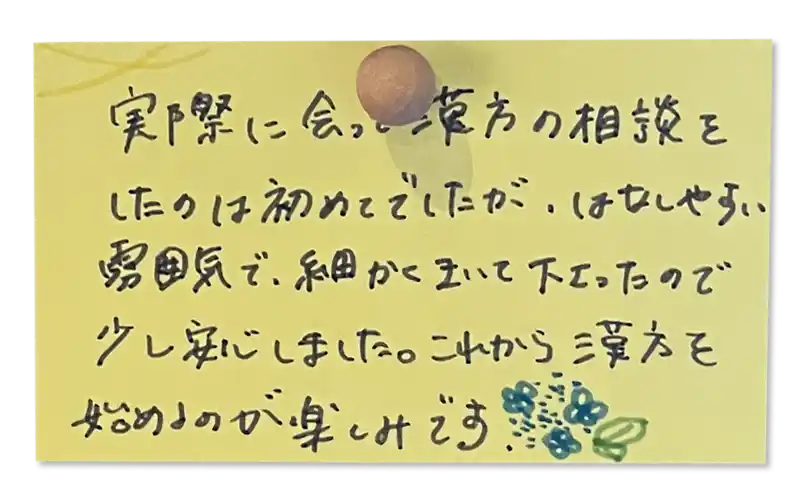 実際に会って漢方の相談を
したのは初めてでしたが、はなしやすい
雰囲気で、細かくきいて下さったので
少し安心しました。これから漢方を
始めるのが楽しみです.